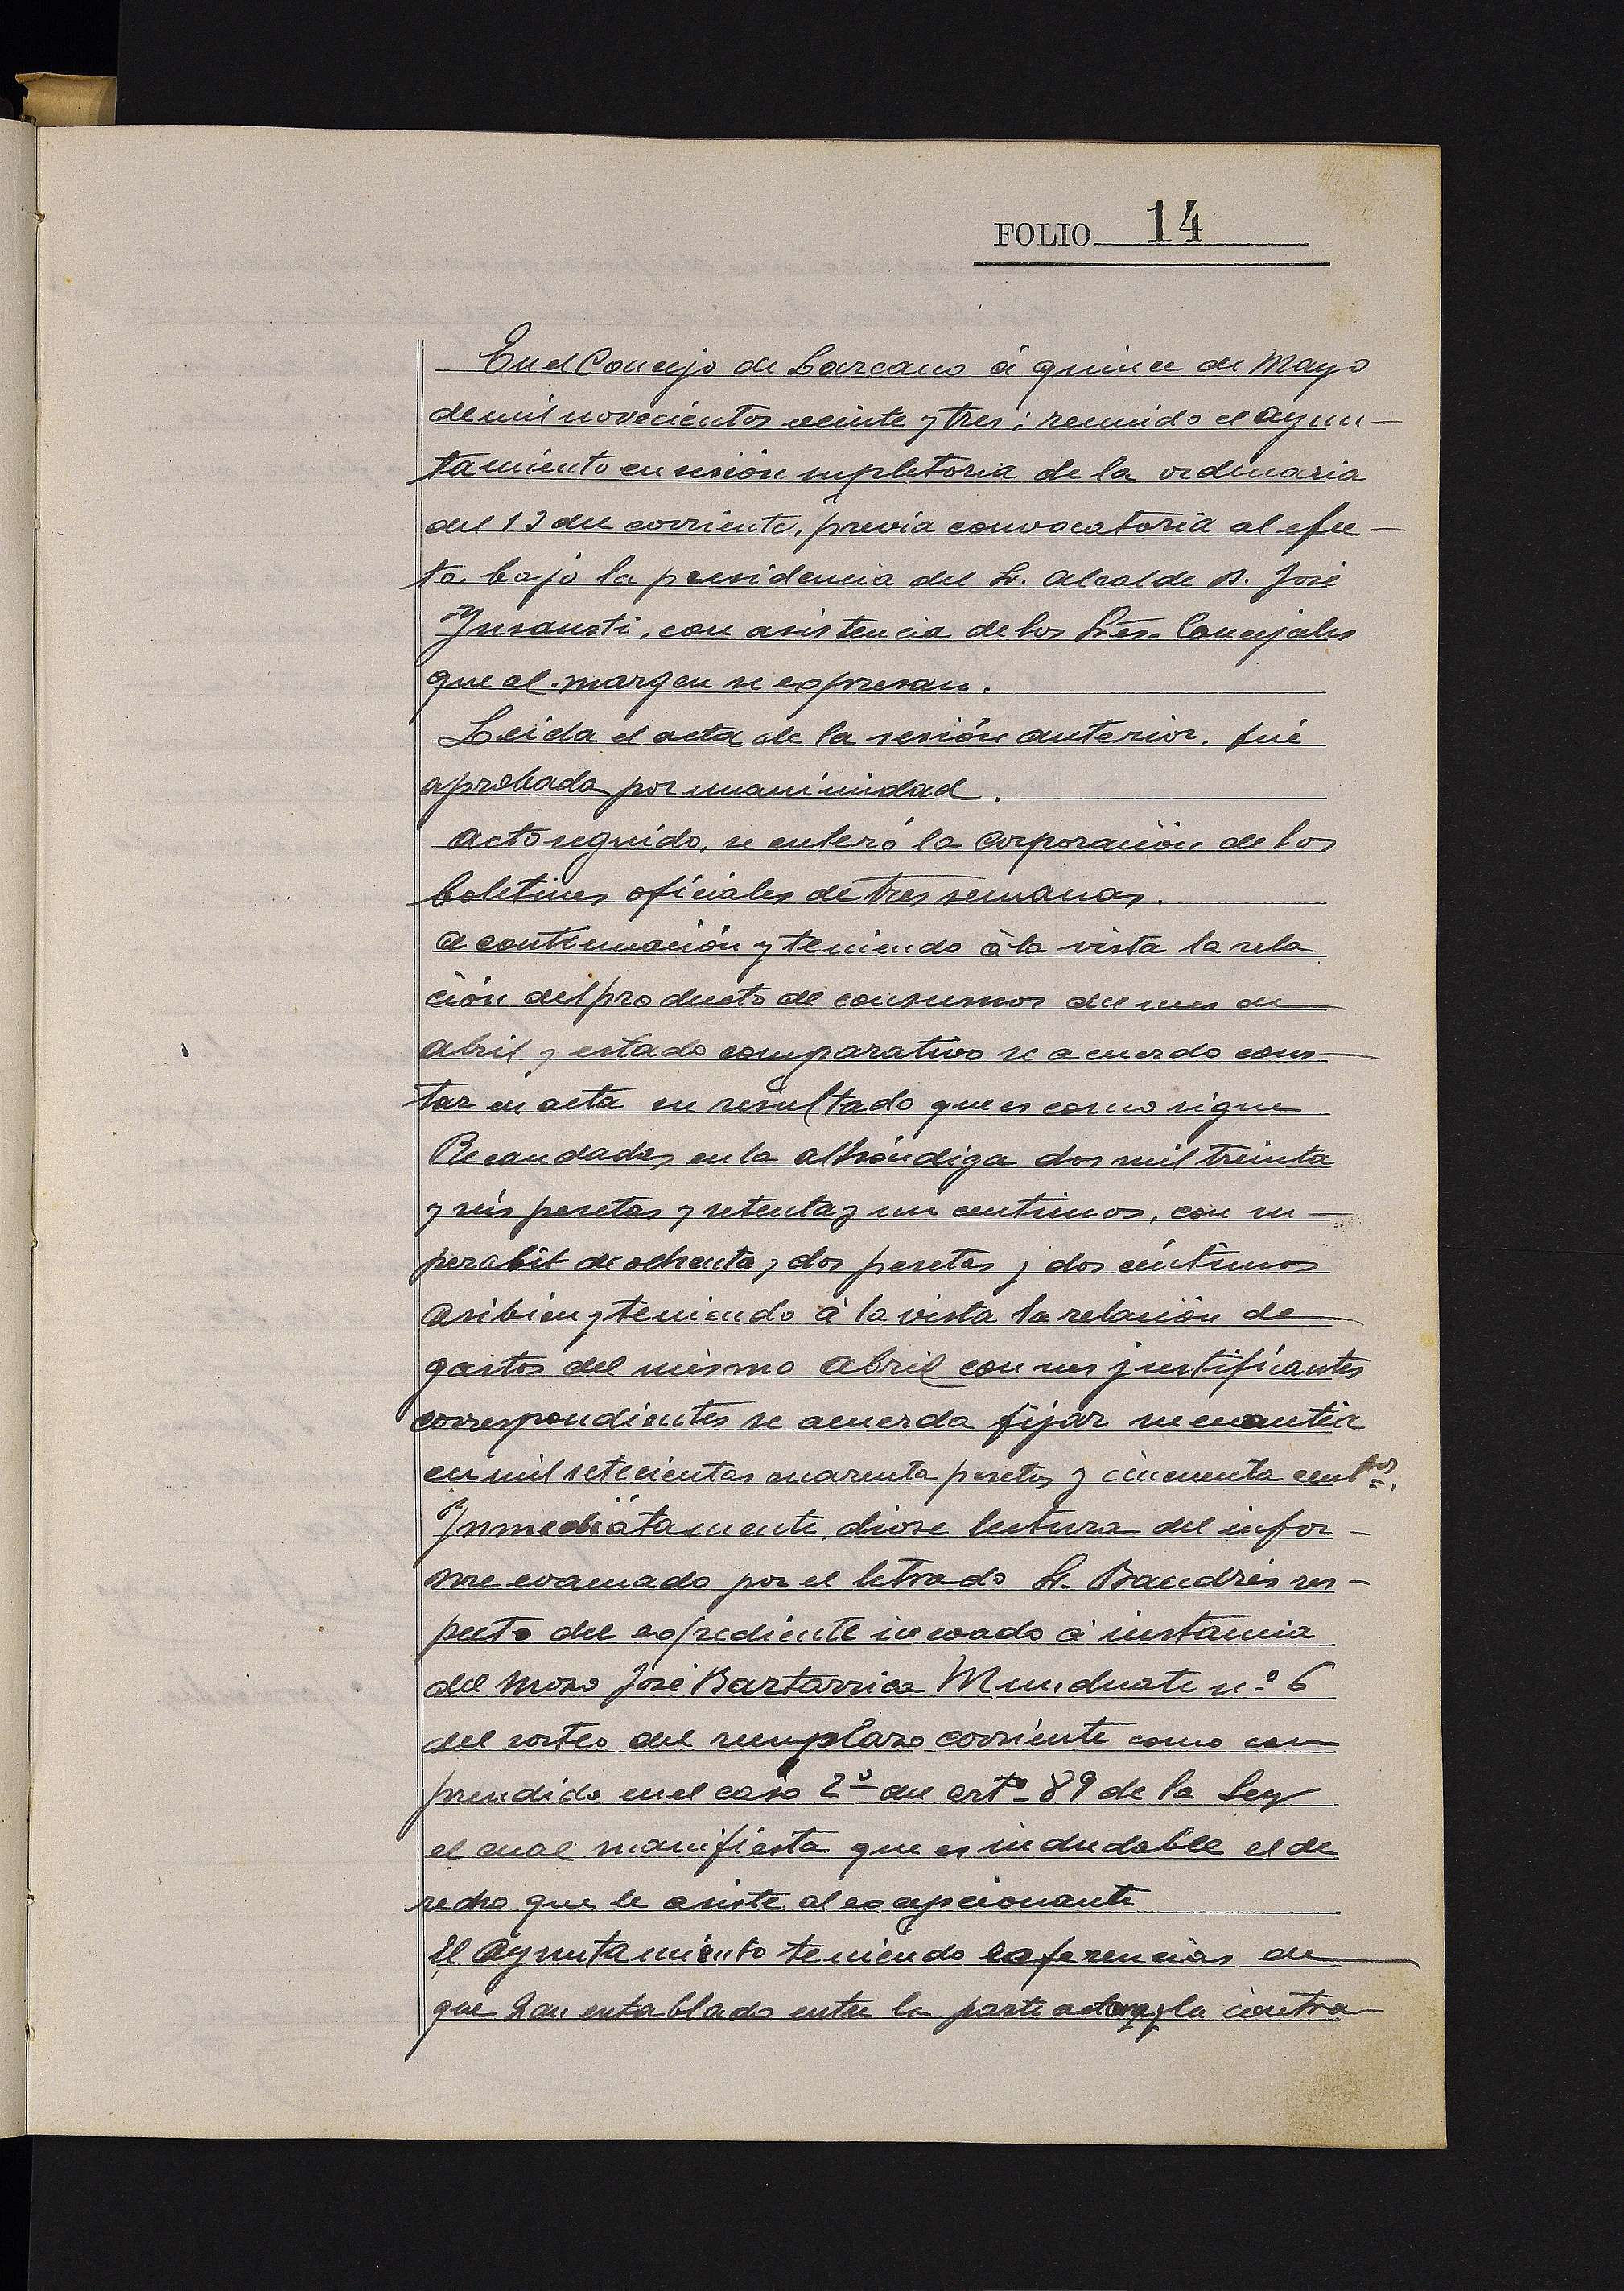 FOLIO 14
En el Concejo de Lazcano á quince de Mayo
de mil novecientos veinte y tres; reunido el Ayun-
tamiento en sesión supletoria de la ordinaria
del 13 del corriente, previa convocatoria al efec-
to, bajo la presidencia del Sr. Alcalde D. José
Insausti, con asistencia de los Sres. Concejales
que al margen se expresan.
Leida el acta de la sesión anterior, fué
aprobada por unanimidad.
Acto seguido, se enteró la Corporación de los
boletines oficiales de tres semanas.
A continuación y teniendo á la vista la rela
ción del producto de consumos del mes de
Abril y estado comparativo se acuerdo cons-
tar en acta su resultado que es como sigue
Recaudadas en la alhóndiga dos mil treinta
y seis pesetas y setenta y un centimos, con su-
perabit de ochenta y dos pesetas y dos céntimos
Asibien y teniendo á la vista la relación de
gastos del mismo Abril con sus justificantes
correspondientes se acuerda fijar su cuantia
en mil setecientas cuarenta pesetas y cincuenta centos.
Inmediátamente, diose lectura del infor-
me evacuado por el letrado Sr. Bandrés res-
pecto del expediente incoado á instancia
del mozo José Bartarrica Munduate nº 6
del sorteo del reemplazo corriente como com
prendido en el caso 2º del artº 89 de la Ley
el cual manifiesta que es indudable el de
recho que le asiste al excepcionante
El Ayuntamiento teniendo referencias de
que han entablado entre la parte actora y la contra